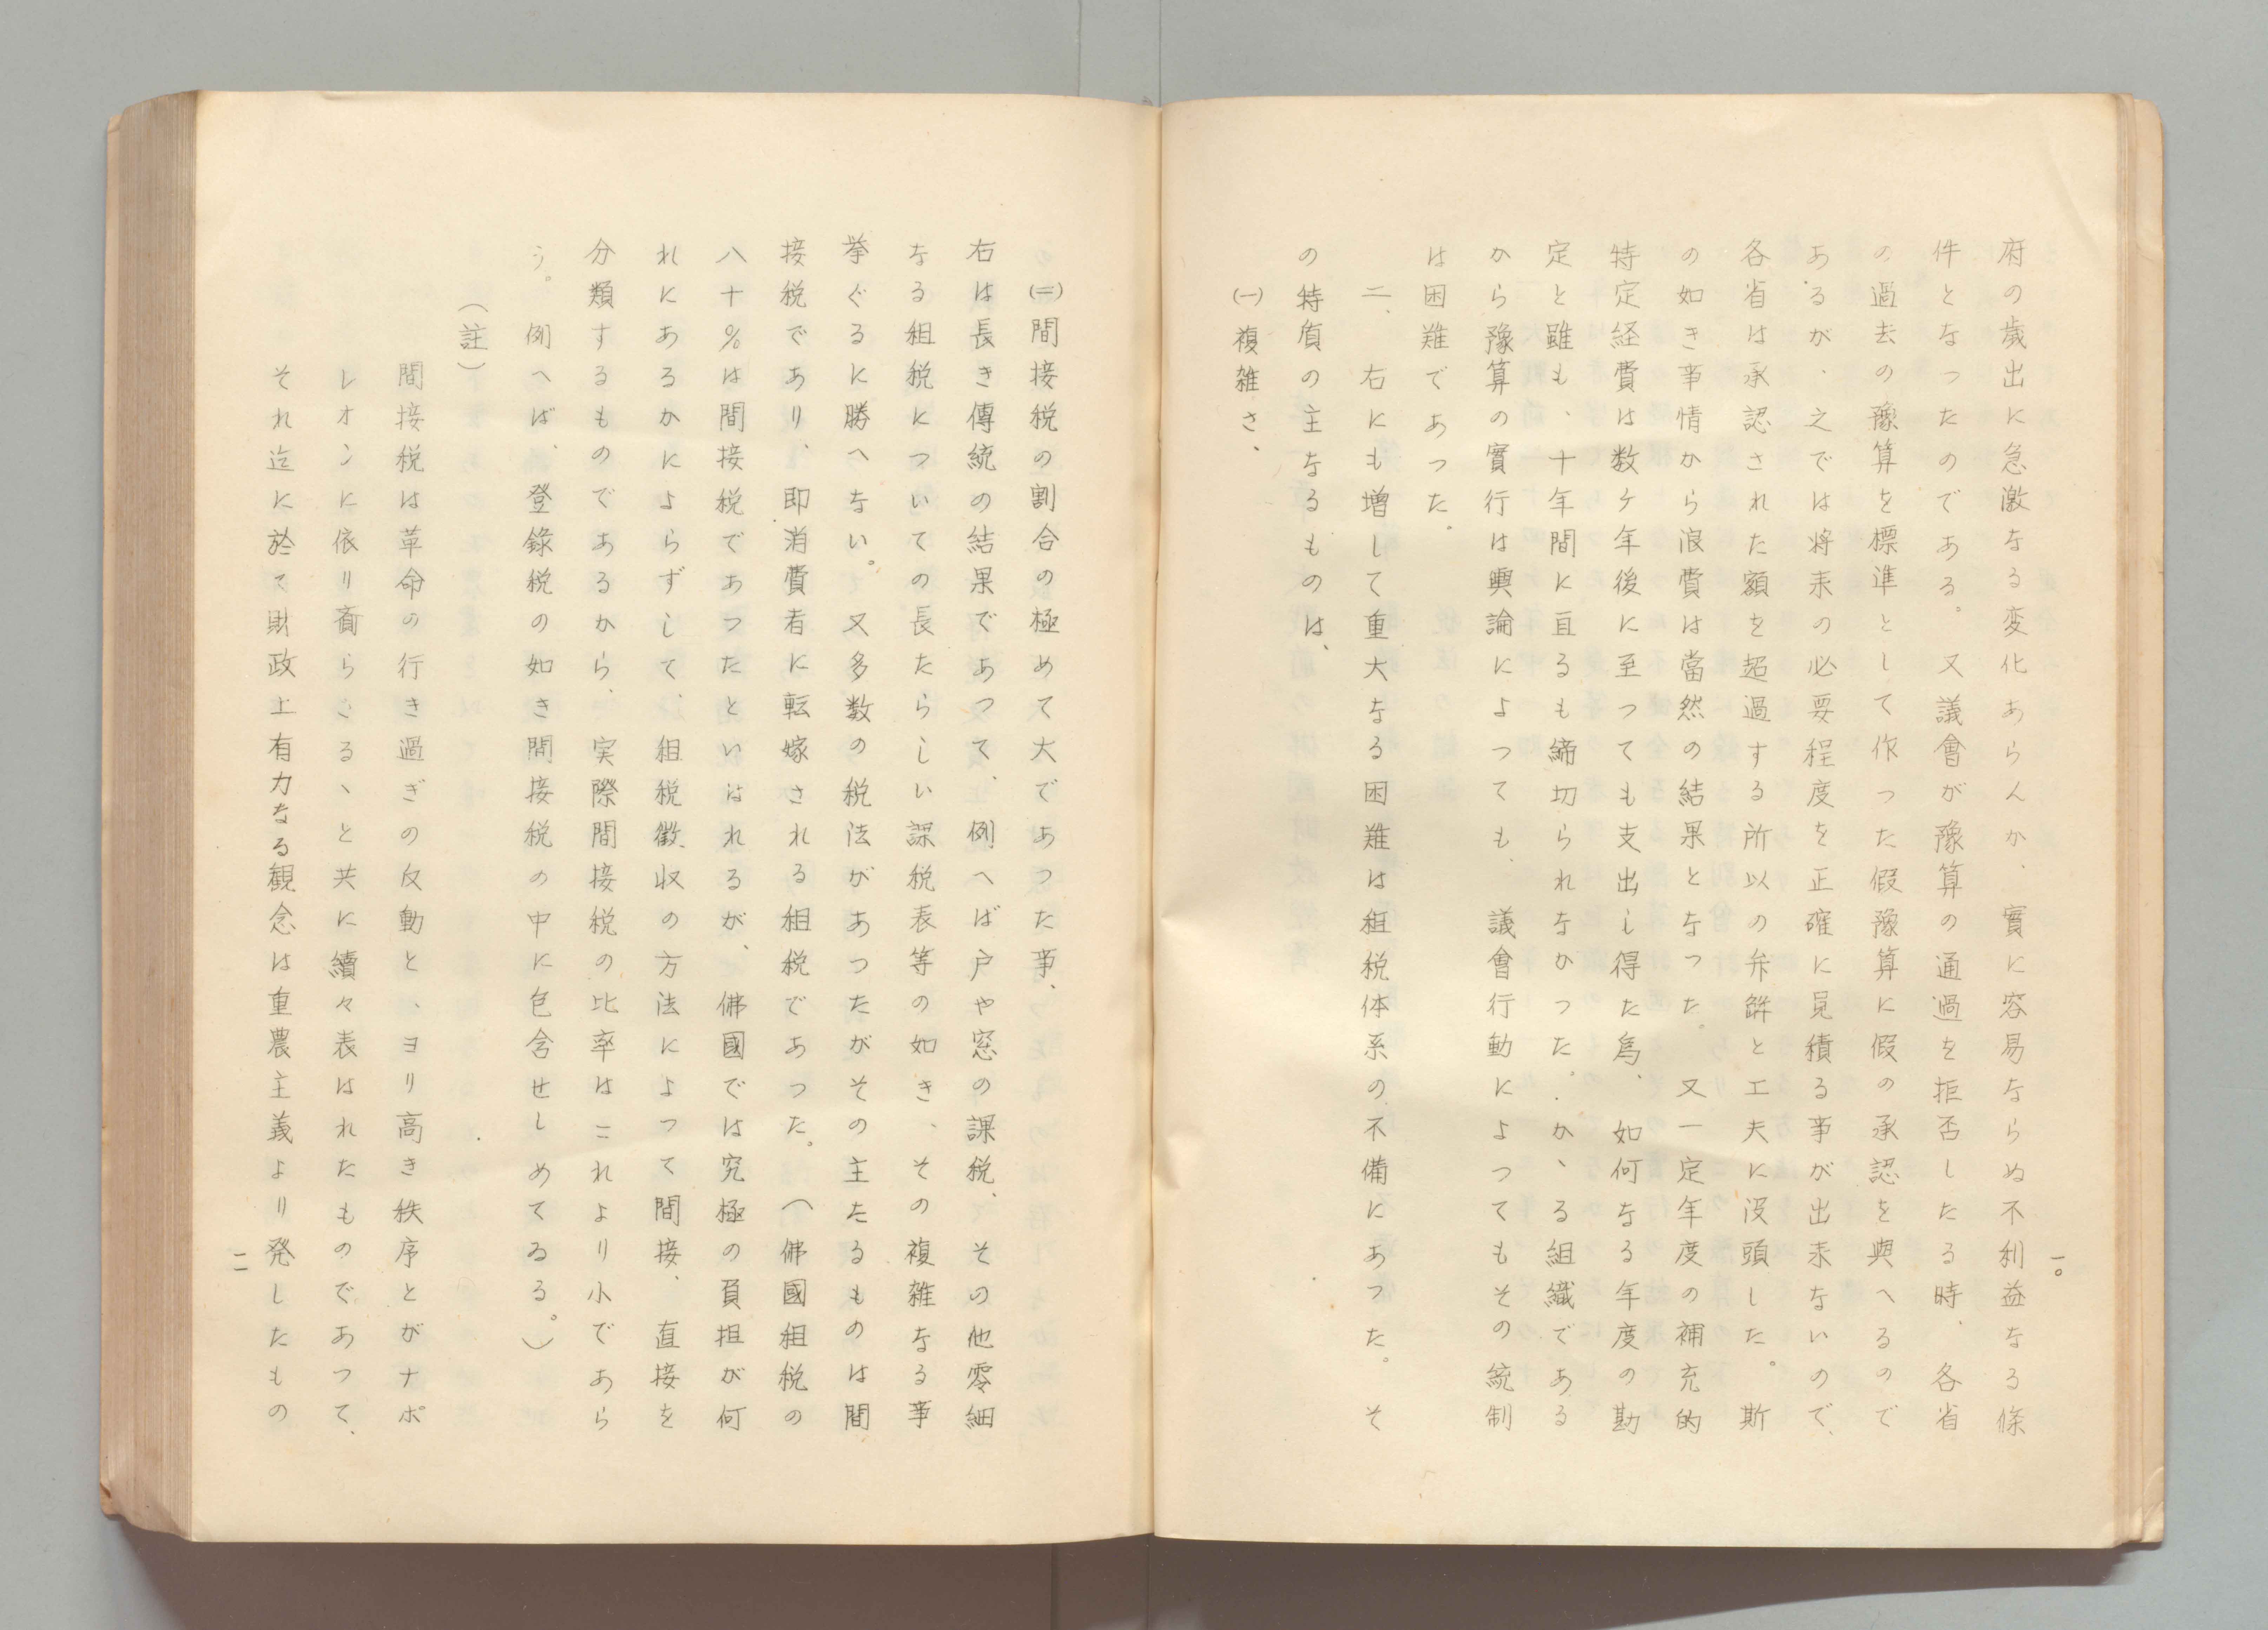 府の歳出に急激なる変化あらんか、實に容易ならぬ不利益なる條
件となったのである。又議會が豫算の通過を拒否したる時、各省
の過去の豫算を標準として作った假豫算に假の承認を與へるので
あるが、之では将来の必要程度を正確に見積る事が出来ないので、
各省は承認された額を超過する所以の弁解と工夫に没頭した。斯
の如き事情から浪費は當然の結果となった。又一定年度の補充的
特定経費は数ケ年後に至っても支出し得た為、如何なる年度の勘
定と雖も、十年間に亘るも締切られなかった。かゝる組織である
から豫算の實行は輿論によっても、議會行動によってもその統制
は困難であった。
二、右にも増して重大なる困難は租税体系の不備にあった。そ
の特質の主なるものは、
㈠複雑さ、
一〇
㈡間接税の割合の極めて大であった事、
右は長き傳統の結果であつて、例へば戸や窓の課税、その他零細
なる租税についての長たらしい課税表等の如き、その複雑なる事
挙ぐるに勝へない。又多数の税法があつたがその主たるものは間
接税であり、即消費者に転嫁される租税であつた。（佛國租税の
八十％は間接税であつたといはれるが、佛國では究極の負担が何
れにあるかによらずして、租税徴収の方法によって間接、直接を
分類するものであるから、実際間接税の比率はこれより小であら
う。例へば、登錄税の如き間接税の中に包含せしめてゐる。）
（註）
間接税は革命の行き過ぎの反動と、ヨリ高き秩序とがナポ
レオンに依り齎らさるゝと共に續々表はれたものであつて、
それ迄に於て財政上有力なる観念は重農主義より発したもの
一一